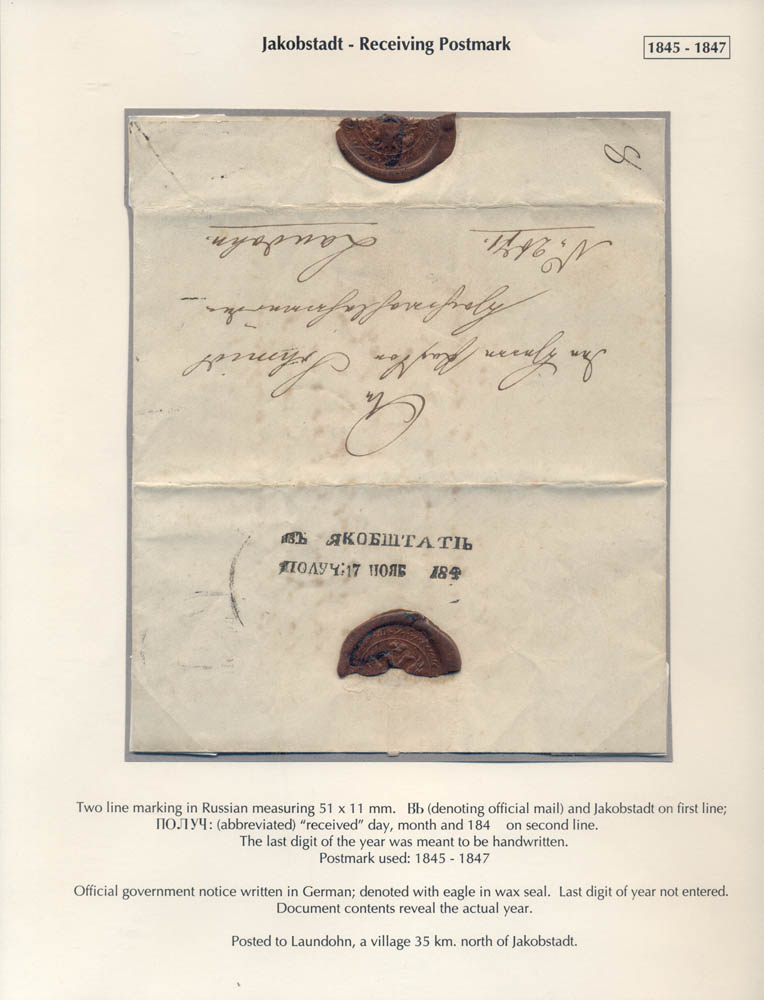 Jakobstadt - Receiving Postmark
1845 - 1847
No. 2871.
Laudohn.
An
ВЪ ЯКОБШТАТЬ
ПОЛУЧ: 17 НОЯБ 184
Two line marking in Russian measuring 51 x 11 mm. ВЬ (denoting official mail) and Jakobstadt on first line;
ПОЛУЧ: (abbreviated) “received” day, month and 184 on second line.
The last digit of the year was meant to be handwritten.
Postmark used: 1845 - 1847
Official government notice written in German; denoted with eagle in wax seal. Last digit of year not entered.
Document contents reveal the actual year.
Posted to Laundohn, a village 35 km. north of Jakobstadt.